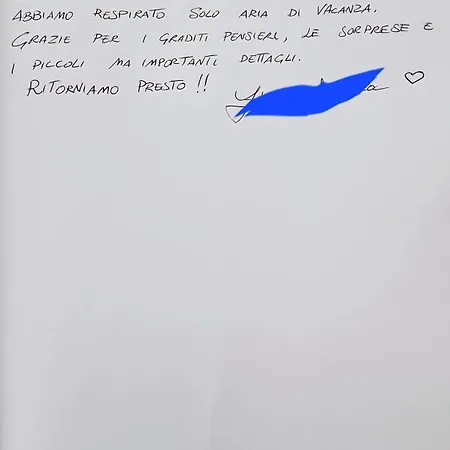 ABBIAMO RESPIRATO SOLO ARIA DI VACANZA.
GRAZIE PER I GRADITI PENSIERI, LE SORPRESE E
I PICCOLI MA IMPORTANTI DETTAGLI.
RITORNIAMO PRESTO !!